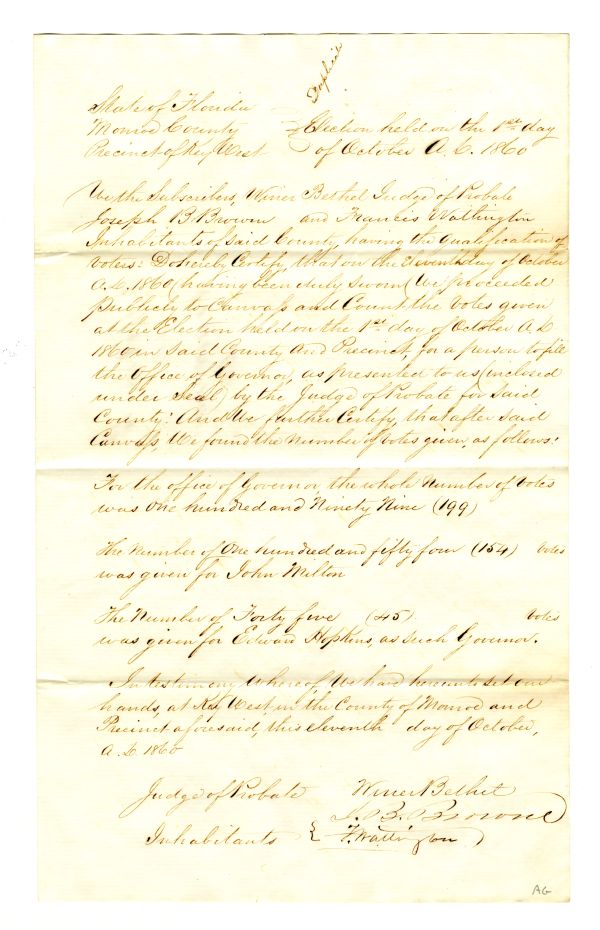 Duplicate
State of Florida
Monroe County
Precinct of Key West
Election held on the 1st day
of October A.D. 1860
We the Subscribers, Winer Bethel Judge of Probate
Joseph B. Browne and Frances Watlington
Inhabitants of Said County, having the qualification of
Voters: Do hereby Certify, that on the Eleventh day of October
A.D. 1860 (having been duly sworn) We proceeded
publicly to Canvass and Count the Votes given
at the Election held on the 1st day of October A.D.
1860 in Said County and Precinct, for a person to fill
the Office of Governor, as presented to us (inclosed
under Seal) by the Judge of Probate for Said
County: And We further Certify, that after Said
Canvass, We found the Number of Votes given, as follows:
For the office of Governor, the whole Number of Votes
was One hundred and Ninety Nine (199)
The Number of One hundred and fifty four (154) Votes
was given for John Milton
The Number of Forty five (45) Votes
was given for Edward Hopkins, as such Governor.
In testimony Whereof, We have hereunto set our
hands, at Key West in the County of Monroe and
Precinct aforesaid, this eleventh day of October,
A.D. 1860
Judge of Probate Winer Bethel
J. B. Browne
Inhabitants { F. Watlington
AG